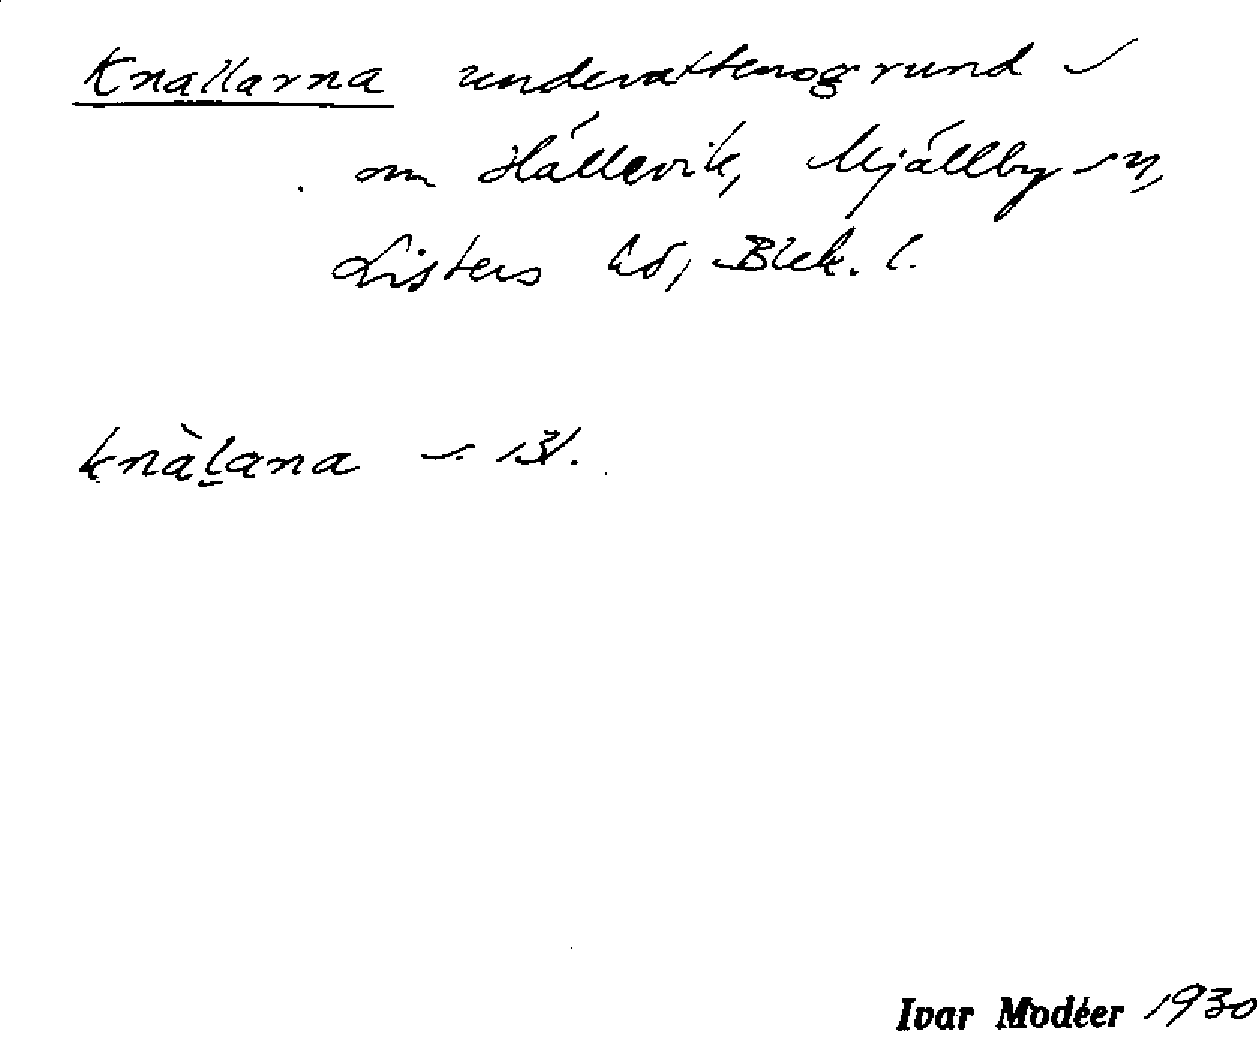 Knallarna undervattensgrund
om Hällevik, Mjällby sn,
Listers hd, Blek. l.
knàl̠ana
Ivar Modéer 1930